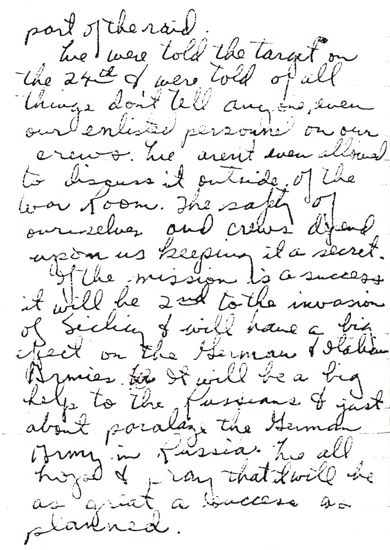 part of the raid.
We were told the target on
the 24th & were told of all
things don't tell any one, even
our enlisted personnel on our
crews. We arent even allowed
to discuss it outside of the
War Room. The safty of
ourselves and crews depend
upon us keeping it a secret.
If the mission is a success
it will be 2nd to the invasion
of Sicily & will have a big
efect on the German & Italian
Armies. It will be a big
help to the Russians & just
about paralaze the German
Army in Russia. We all
hope & pray that it will be
as great a success as
planned.